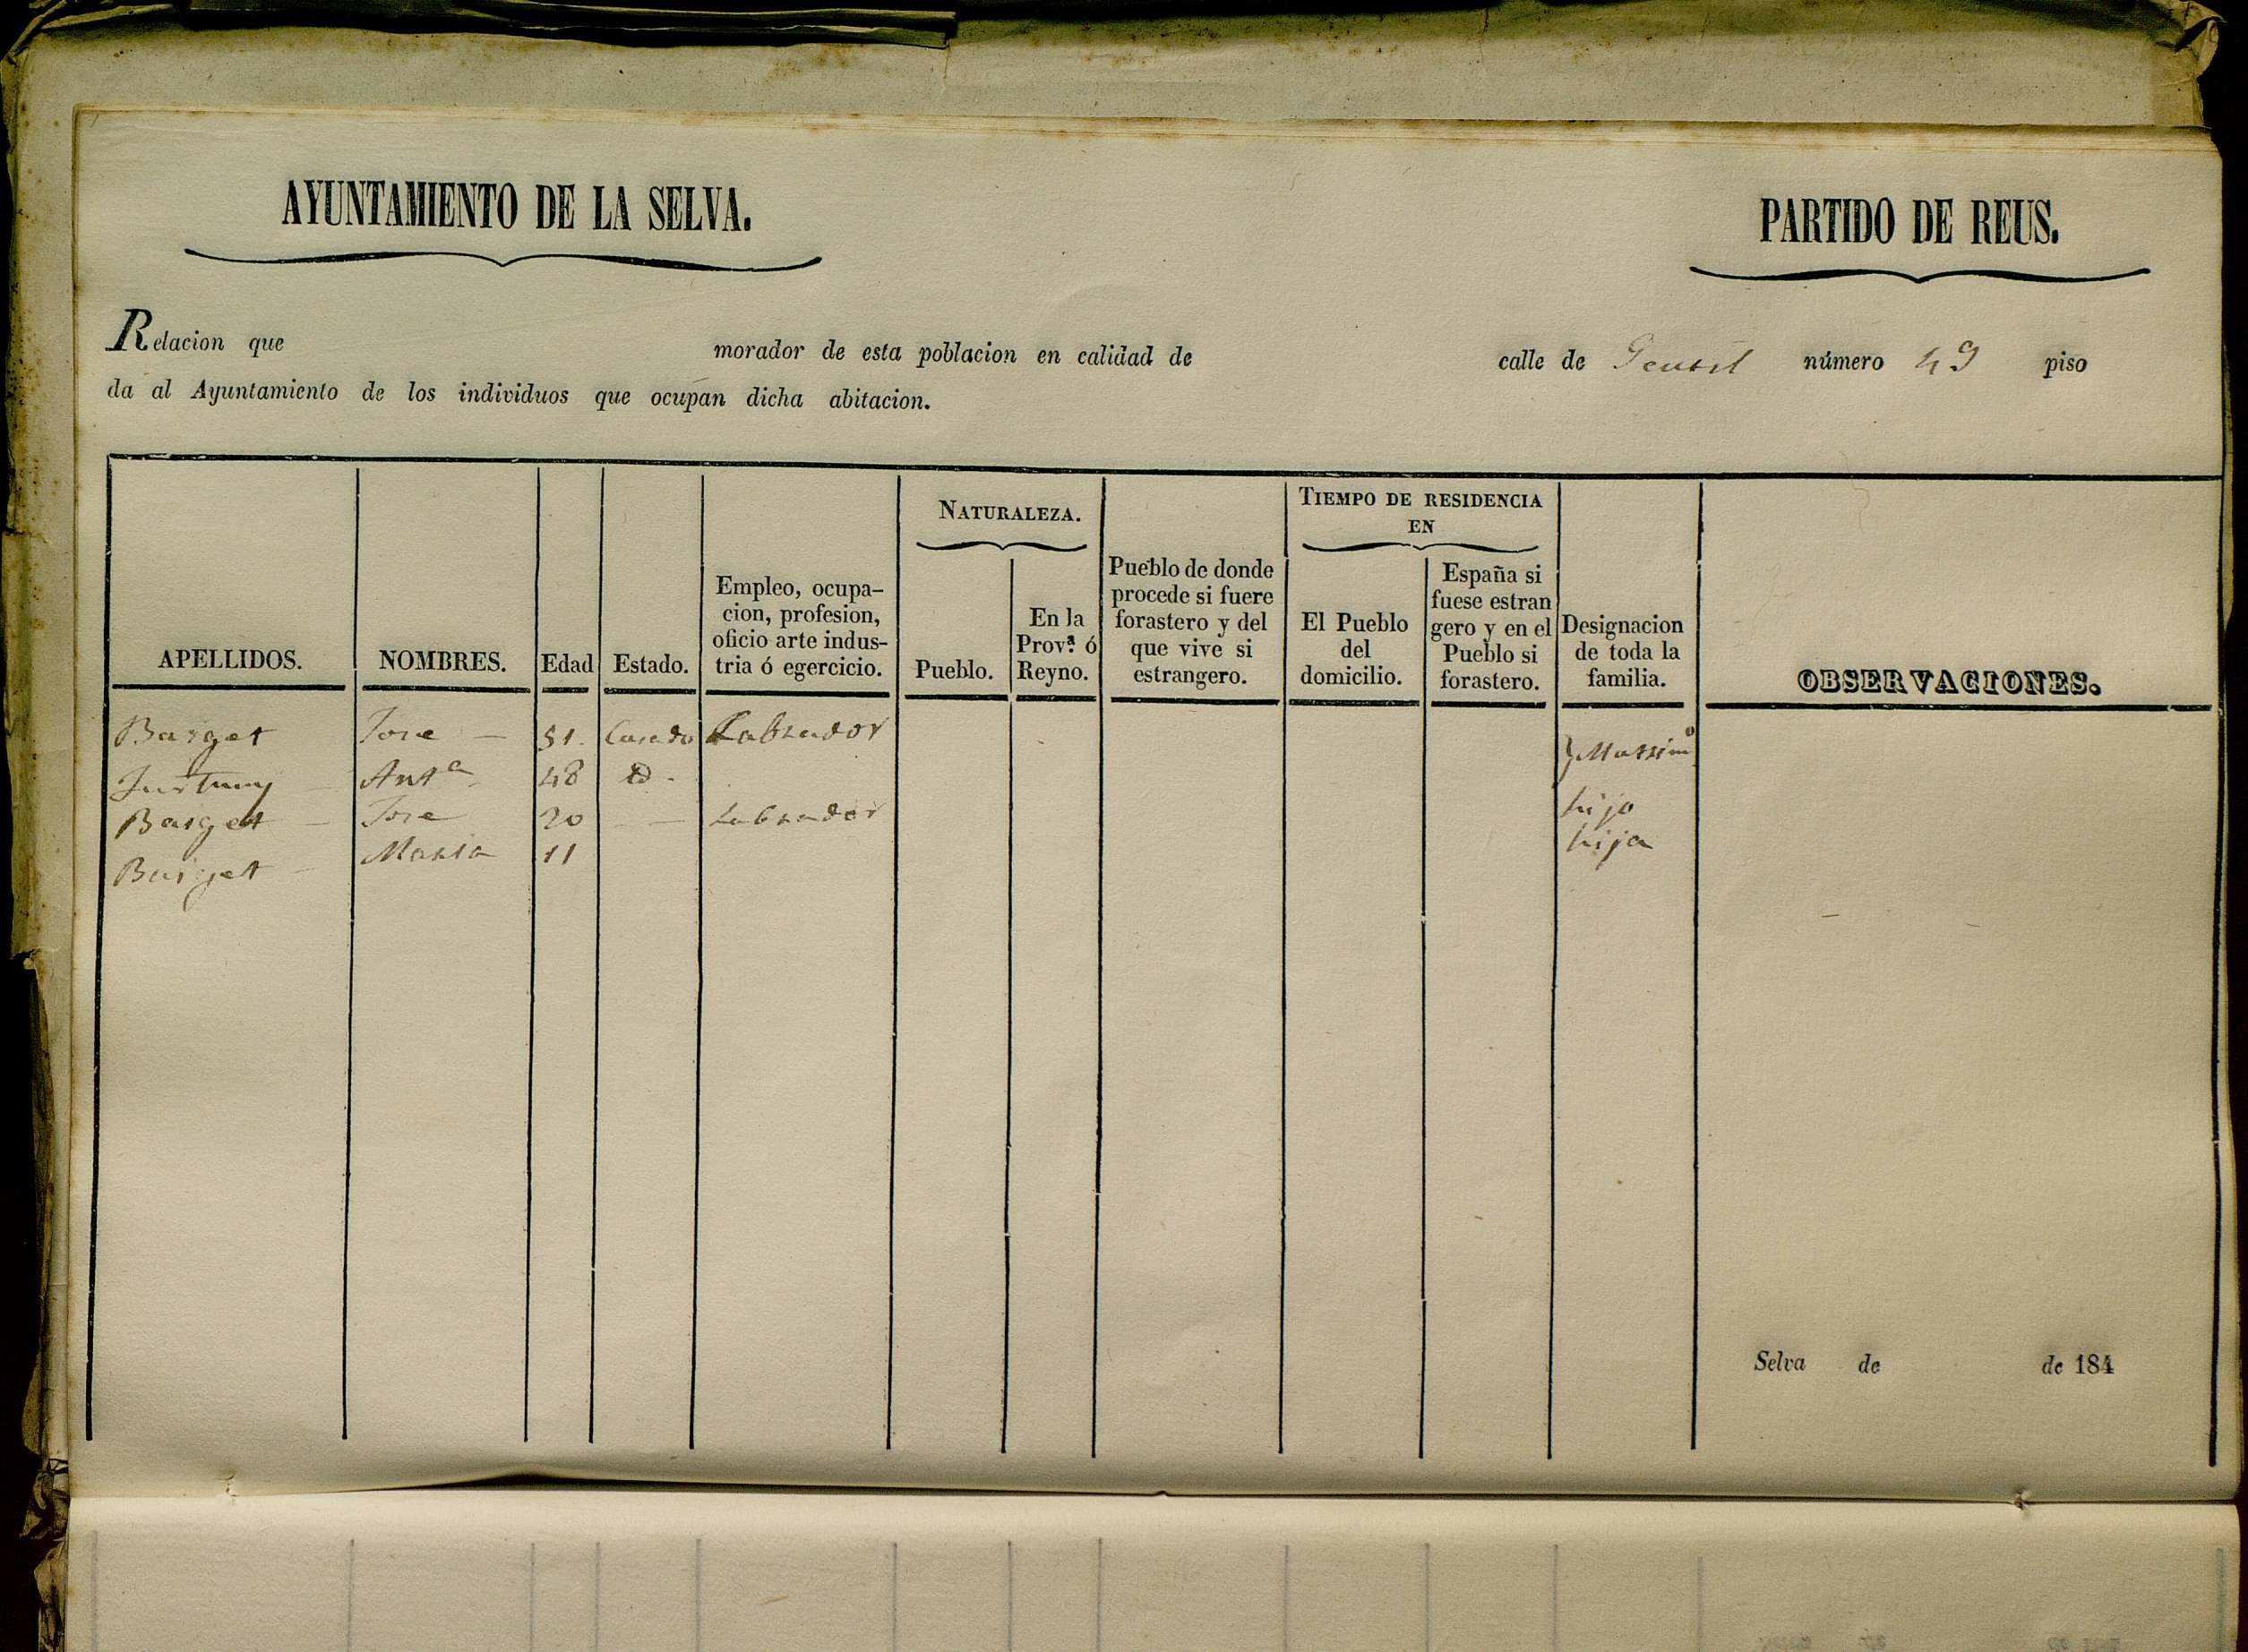 AYUNTAMIENTO DE LA SELVA.
PARTIDO DE REUS.
Relacion que morador de esta poblacion en calidad de calle de número 49 piso
da al Ayuntamiento de los individuos que ocupan dicha abitacion.
APELLIDOS.
NOMBRES.
Edad
Estado.
Empleo, ocupa-
cion, profesion,
oficio arte indus-
tria ó egercicio.
NATURALEZA.
Pueblo.
En la
Prov.ª ó
Reyno.
Pueblo de donde
procede si fuere
forastero y del
que vive si
estrangero.
TIEMPO DE RESIDENCIA
EN
El Pueblo
del
domicilio.
España si
fuese estran
gero y en el
Pueblo si
forastero.
Designacion
de toda la
familia.
OBSERVACIONES.
Barget Jose 51. Casado Labrador } Matrimº
Antª 48 id.
Barget Jose 20 Labrador hijo
Barget Maria 11 hija
Selva de de 184